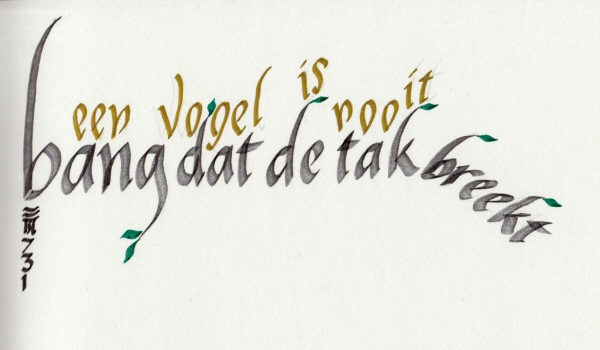 een vogel is nooit
bang dat de tak breekt
731